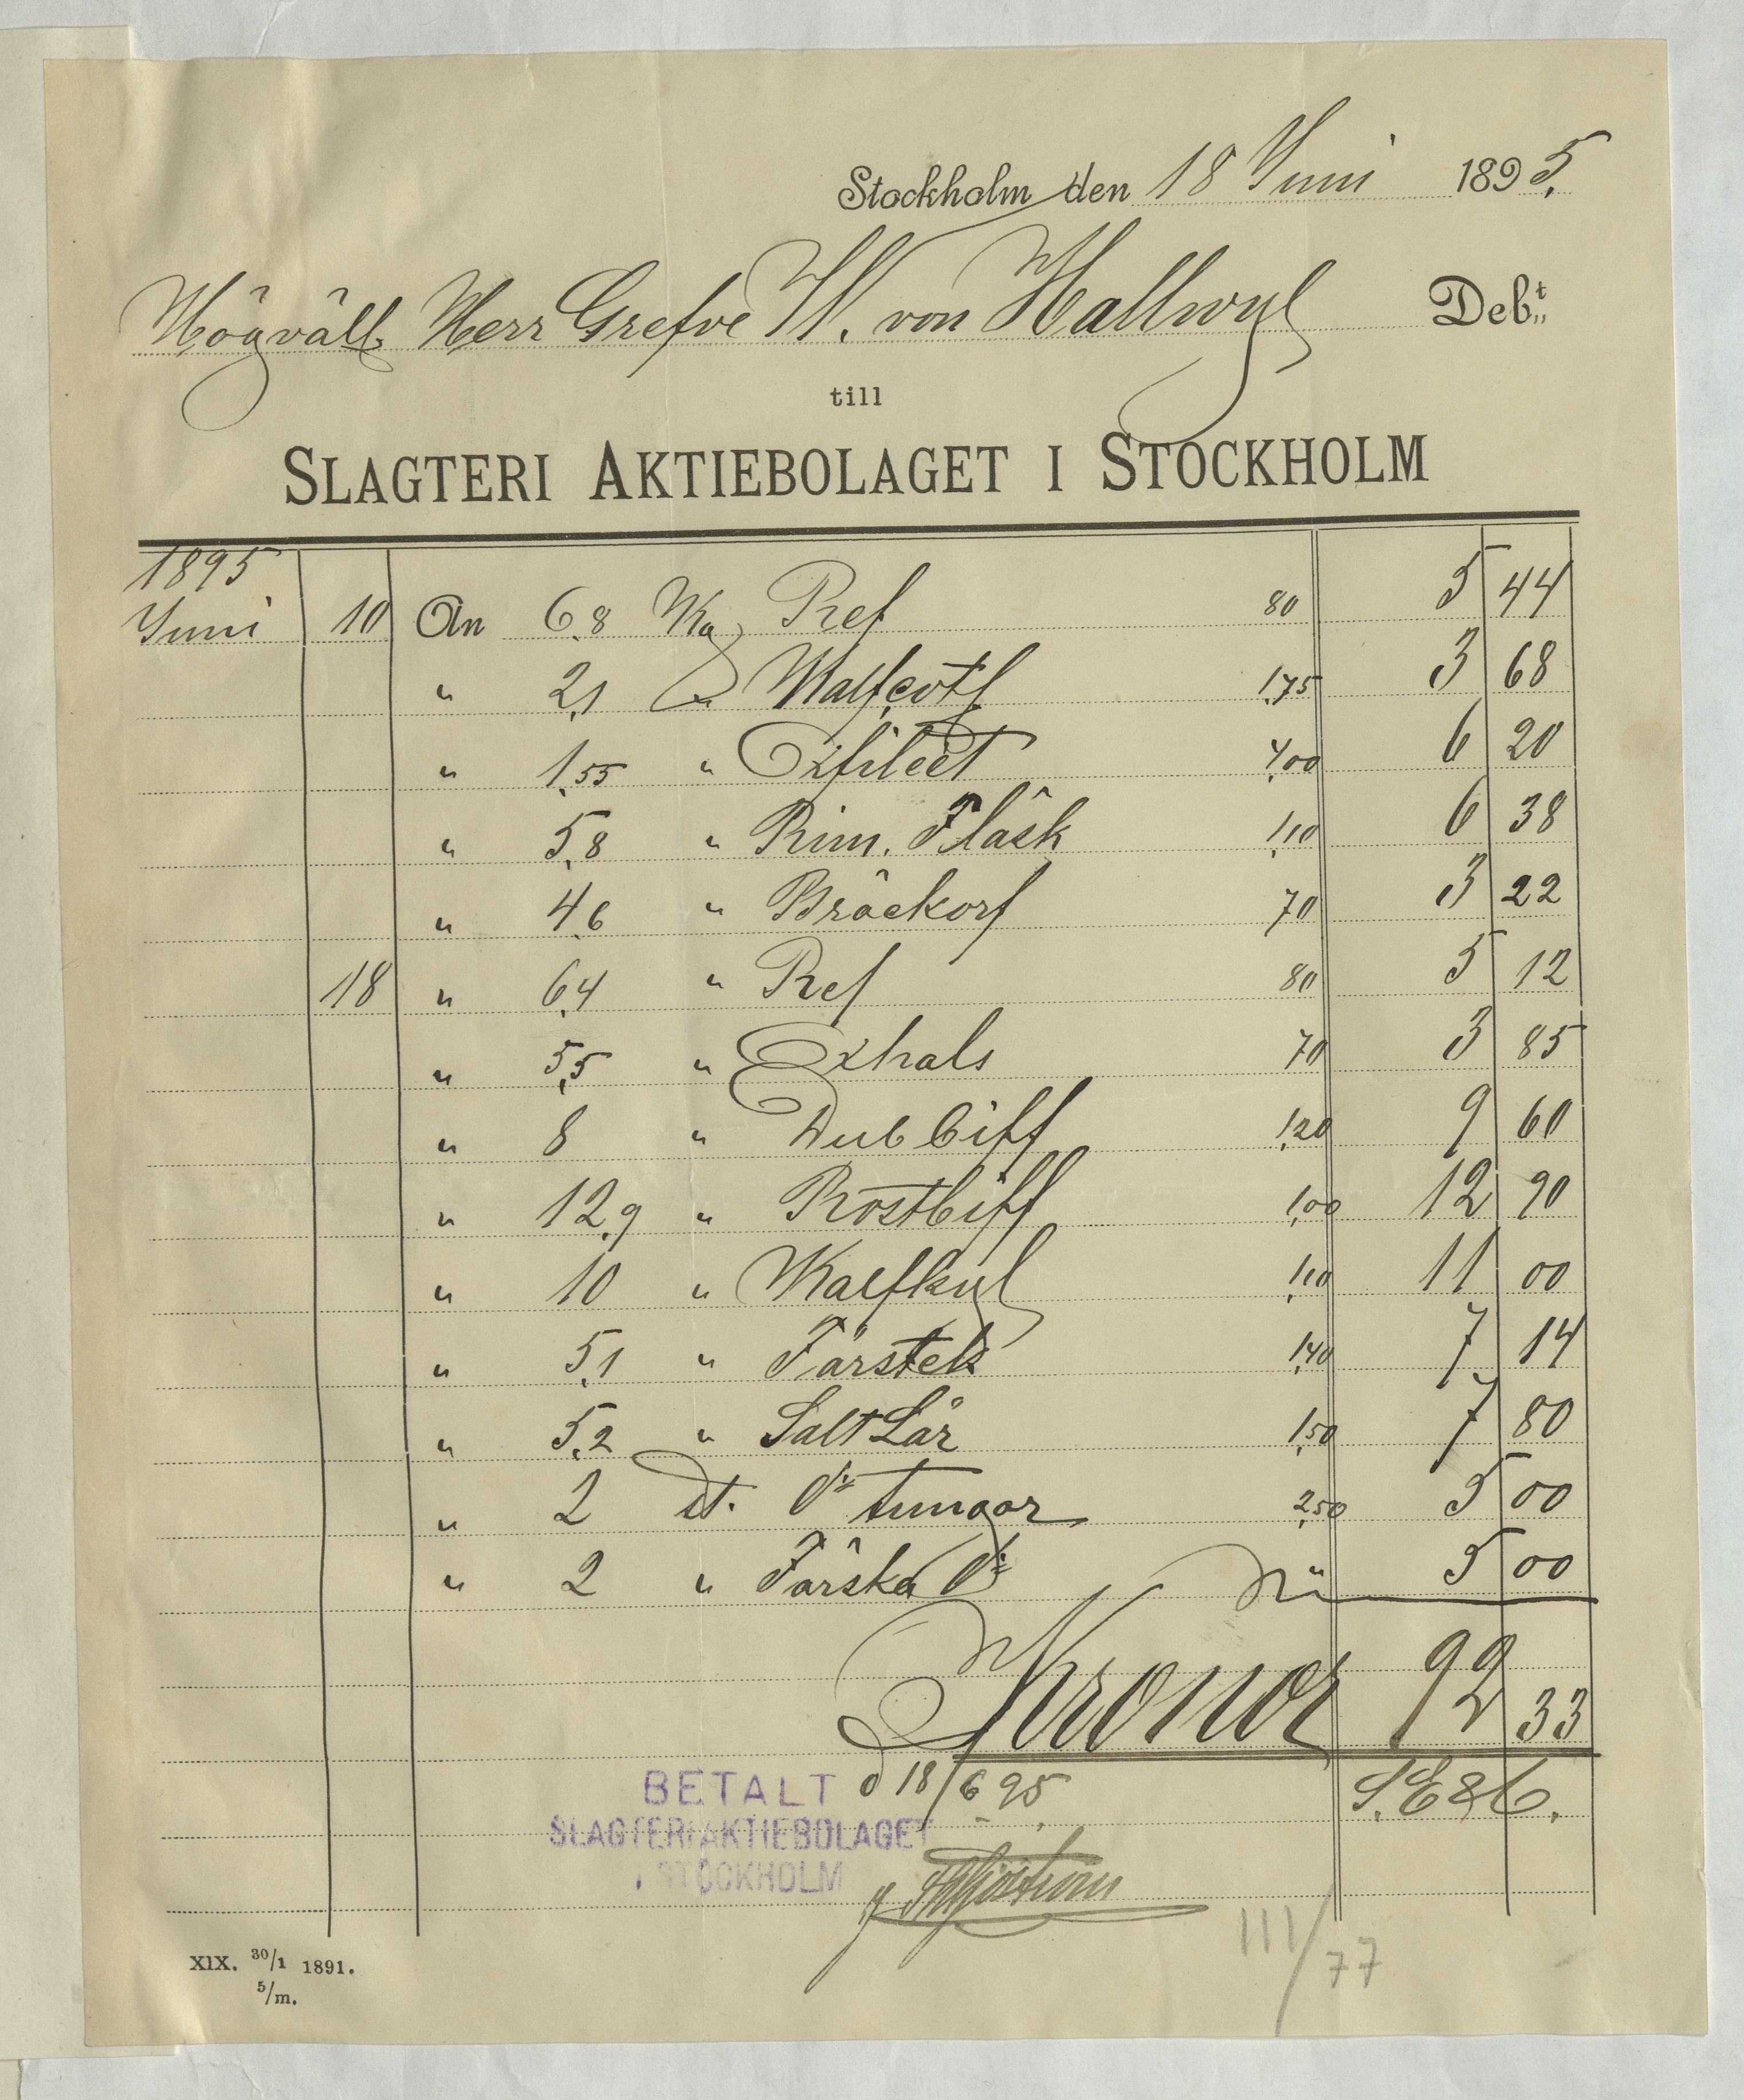 Stockholm den 18 Juni 1895.
Högvälb. Herr Grefve W. von Hallwyl Debt
till
SLAGTERI AKTIEBOLAGET I STOCKHOLM
1895
Juni 10 An 6,8 Kg Ref 80 5 44
" 2,1 " Kalfcotl 1,75 3 68
" 1,55 " Oxfileet 4,00 6 20
" 5,8 " Rim. Fläsk 1,10 6 38
" 4,6 " Bräckorf 70 3 22
18 " 6,4 " Ref 80 5 12
" 5,5 " Oxhals 70 3 85
" 8 " Dubbiff 1,20 9 60
" 12,9 " Rostbiff 1,00 12 90
" 10 " Kalfkyl 1,10 11 00
" 5,1 " Fårstek 1,40 7 14
" 5,2 " Salt Lår 1,50 7 80
" 2 st. Do tungor 2,50 5 00
" 2 " Färska Do " 5 00
Kronor 92 33
BETALT d 18/6 95. S.E&O.
SLAGTERIAKTIEBOLAGET
I STOCKHOLM
111/77
XIX. 30/1 1891.
5/m.